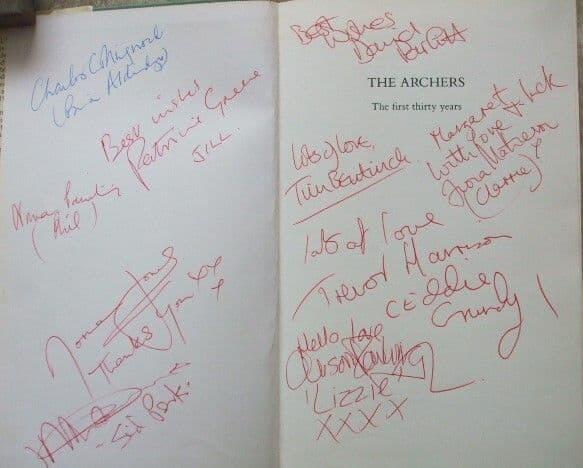 Charles Collingwood
(Brian Aldridge)
Best wishes
Patricia Greene
JILL.
Norman Painting
(Phil)
Thank you xx
x
- Sid Perks.
Best
Wishes
THE ARCHERS
The first thirty years
Lots of love,
Tim Bentinck.
Margaret
With love & luck
Fiona Mathieson
(Clarrie) x
lots of love
Trevor Harrison
(Eddie
Grundy)
Hello love
Alison Dowling
'Lizzie'
XXXX